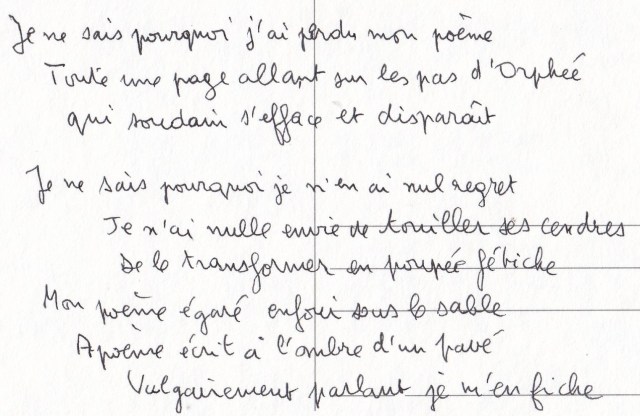 Je ne sais pourquoi j'ai perdu mon poème
Toute une page allant sur les pas d'Orpheé
qui soudain s'efface et disparaît
Je ne sais pourquoi je n'en ai nul regret
Je n'ai nulle envie de touiller ses cendres
De le transformer en poupée fétiche
Mon poème égaré enfoui sous le sable
Apoème écrit à l'ombre d'un pavé
Vulgairement parlant je m'en fiche